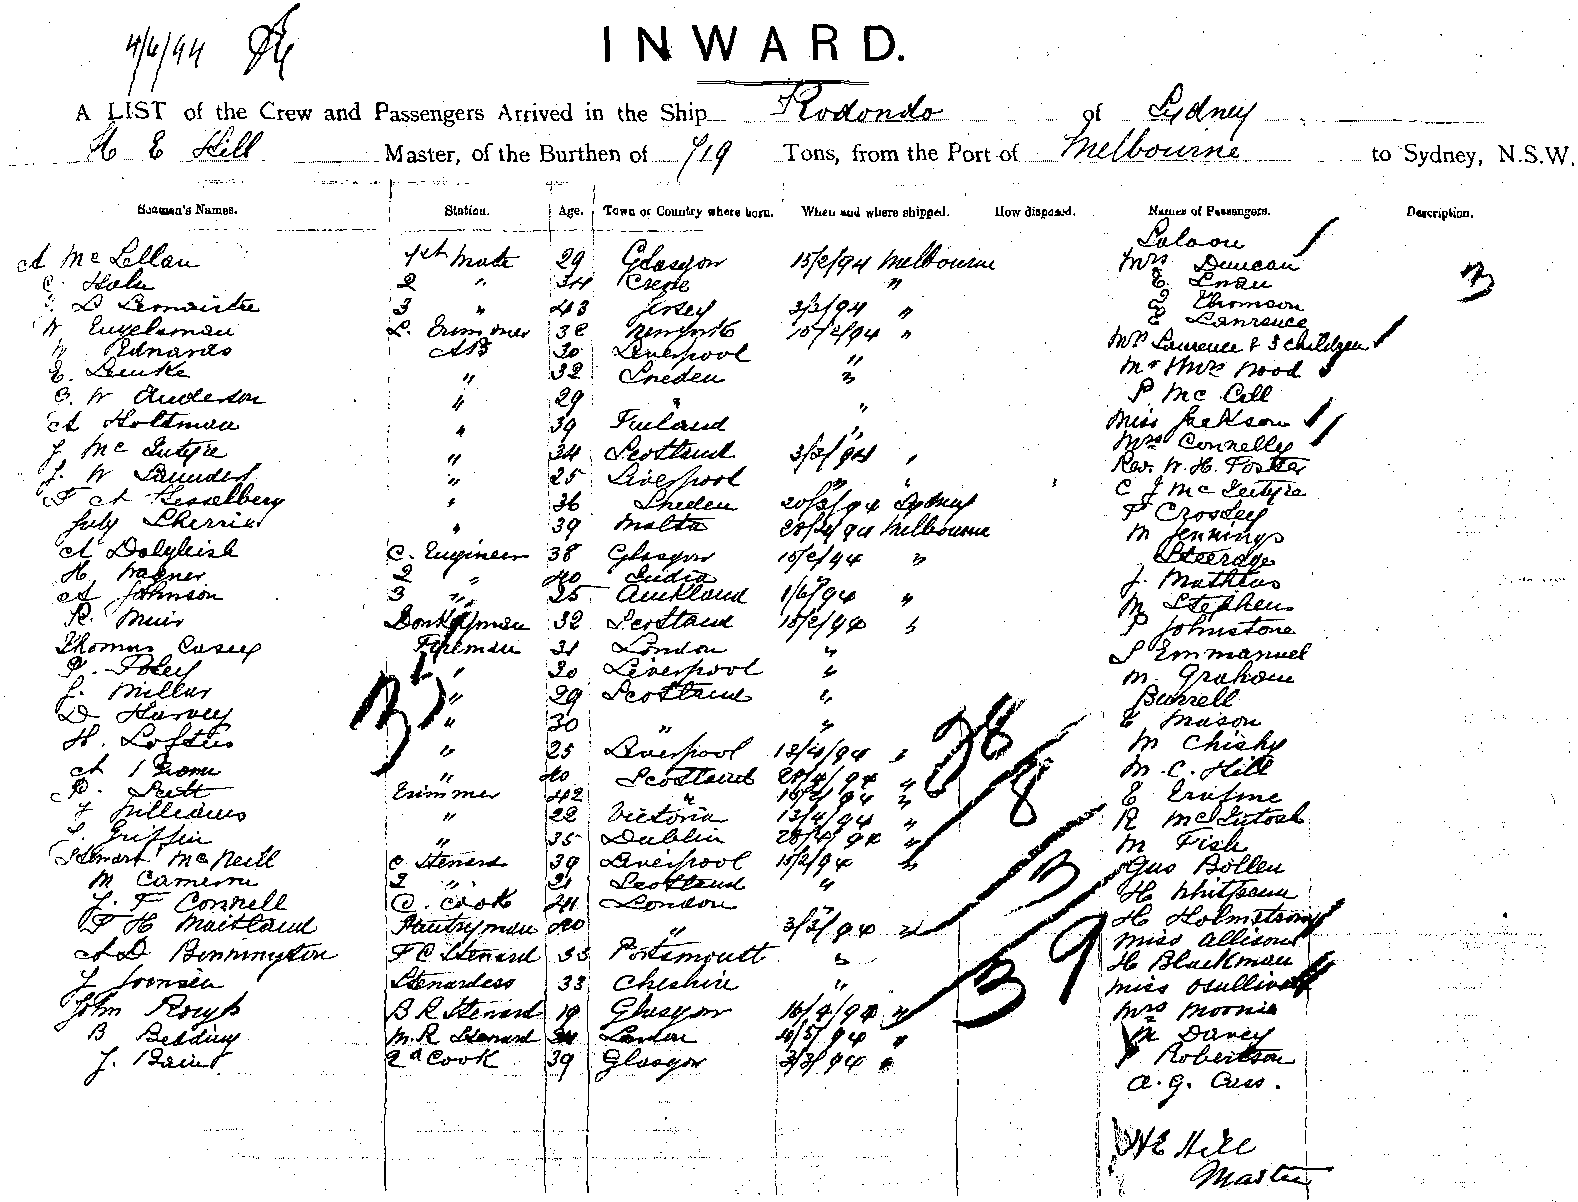 4/6/94
INWARD.
A LIST of the Crew and Passengers Arrived in the Ship Rodondo of Sydney
H E Hill Master, of the Burthen of 719 Tons, from the Port of Melbourne to Sydney, N.S.W.
Seaman's Names. Station. Age. Town or Country where born. When and where shipped. How disposed. Names of Passengers. Description.
Saloon
A McLellan 1st Mate 29 Glasgow 15/2/94 Melbourne Mrs Duncan
2 " 34 "
3 " 43 Jersey 3/3/94 " Thomson
W Engelsman L. Trimmer 32 15/2/94 " E Lawrence
W Edwards AB 30 Liverpool " Mrs Laurence & 3 children
E. Lemke " 32 Sweden " Mr & Mrs Wood
W Anderson " 29 " " P McCall
A Holtman " 39 Finland " Miss Jackson
J McIntyre " 34 Scotland 3/3/94 " Mrs Connelly
J. W Saunders " 25 Liverpool " " Rev. W. H. Foster
F A Hesselberg " 36 Sweden 20/3/94 Sydney C J McIntyre
July " 39 Malta Melbourne P Crossley
A Dalgleish C. Engineer 38 Glasgow 15/2/94 " M Jennings
H Wagner 2 " 40 India Steerage
A Johnson 3 " 25 Auckland " J. Mathews
R. Muir Donkeyman 32 Scotland 15/2/94 " M Stephens
Thomas Casey Fireman 31 London " P Johnstone
P. Foley " 30 Liverpool " S Emmanuel
J. Millar " 29 Scotland " M. Graham
D Harvey " 30 " " Burrell
H. Loftus " 25 Liverpool 13/4/94 " E Mason
A " 40 Scotland " M
Trimmer 42 " M. C. Hill
J Williams " 22 Victoria 13/4/94 " E
Griffin " 35 Dublin 28/4/94 " R McIntosh
Stewart McNeill C Steward 39 Liverpool 15/2/94 " M Fish
M Cameron 2 " 21 Scotland " Gus Bollen
J. F Connell C. Cook 24 London " H Whitpain
F H Maitland Pantryman 40 " 3/3/94 " H Holmstrom
A D Bonnington F C Steward 33 Portsmouth " Miss Allison
J Stewardess 33 Cheshire " H Blackman
John B R Steward 19 Glasgow 16/4/94 " Miss Osullivan
B Bedding M. R Steward 34 London 4/5/94 " Mrs
J. Bain 2d Cook 39 Glasgow 3/3/94 " M Davey
Robertson
A. G. Cass.
28
8
3
39
H E Hill
Master